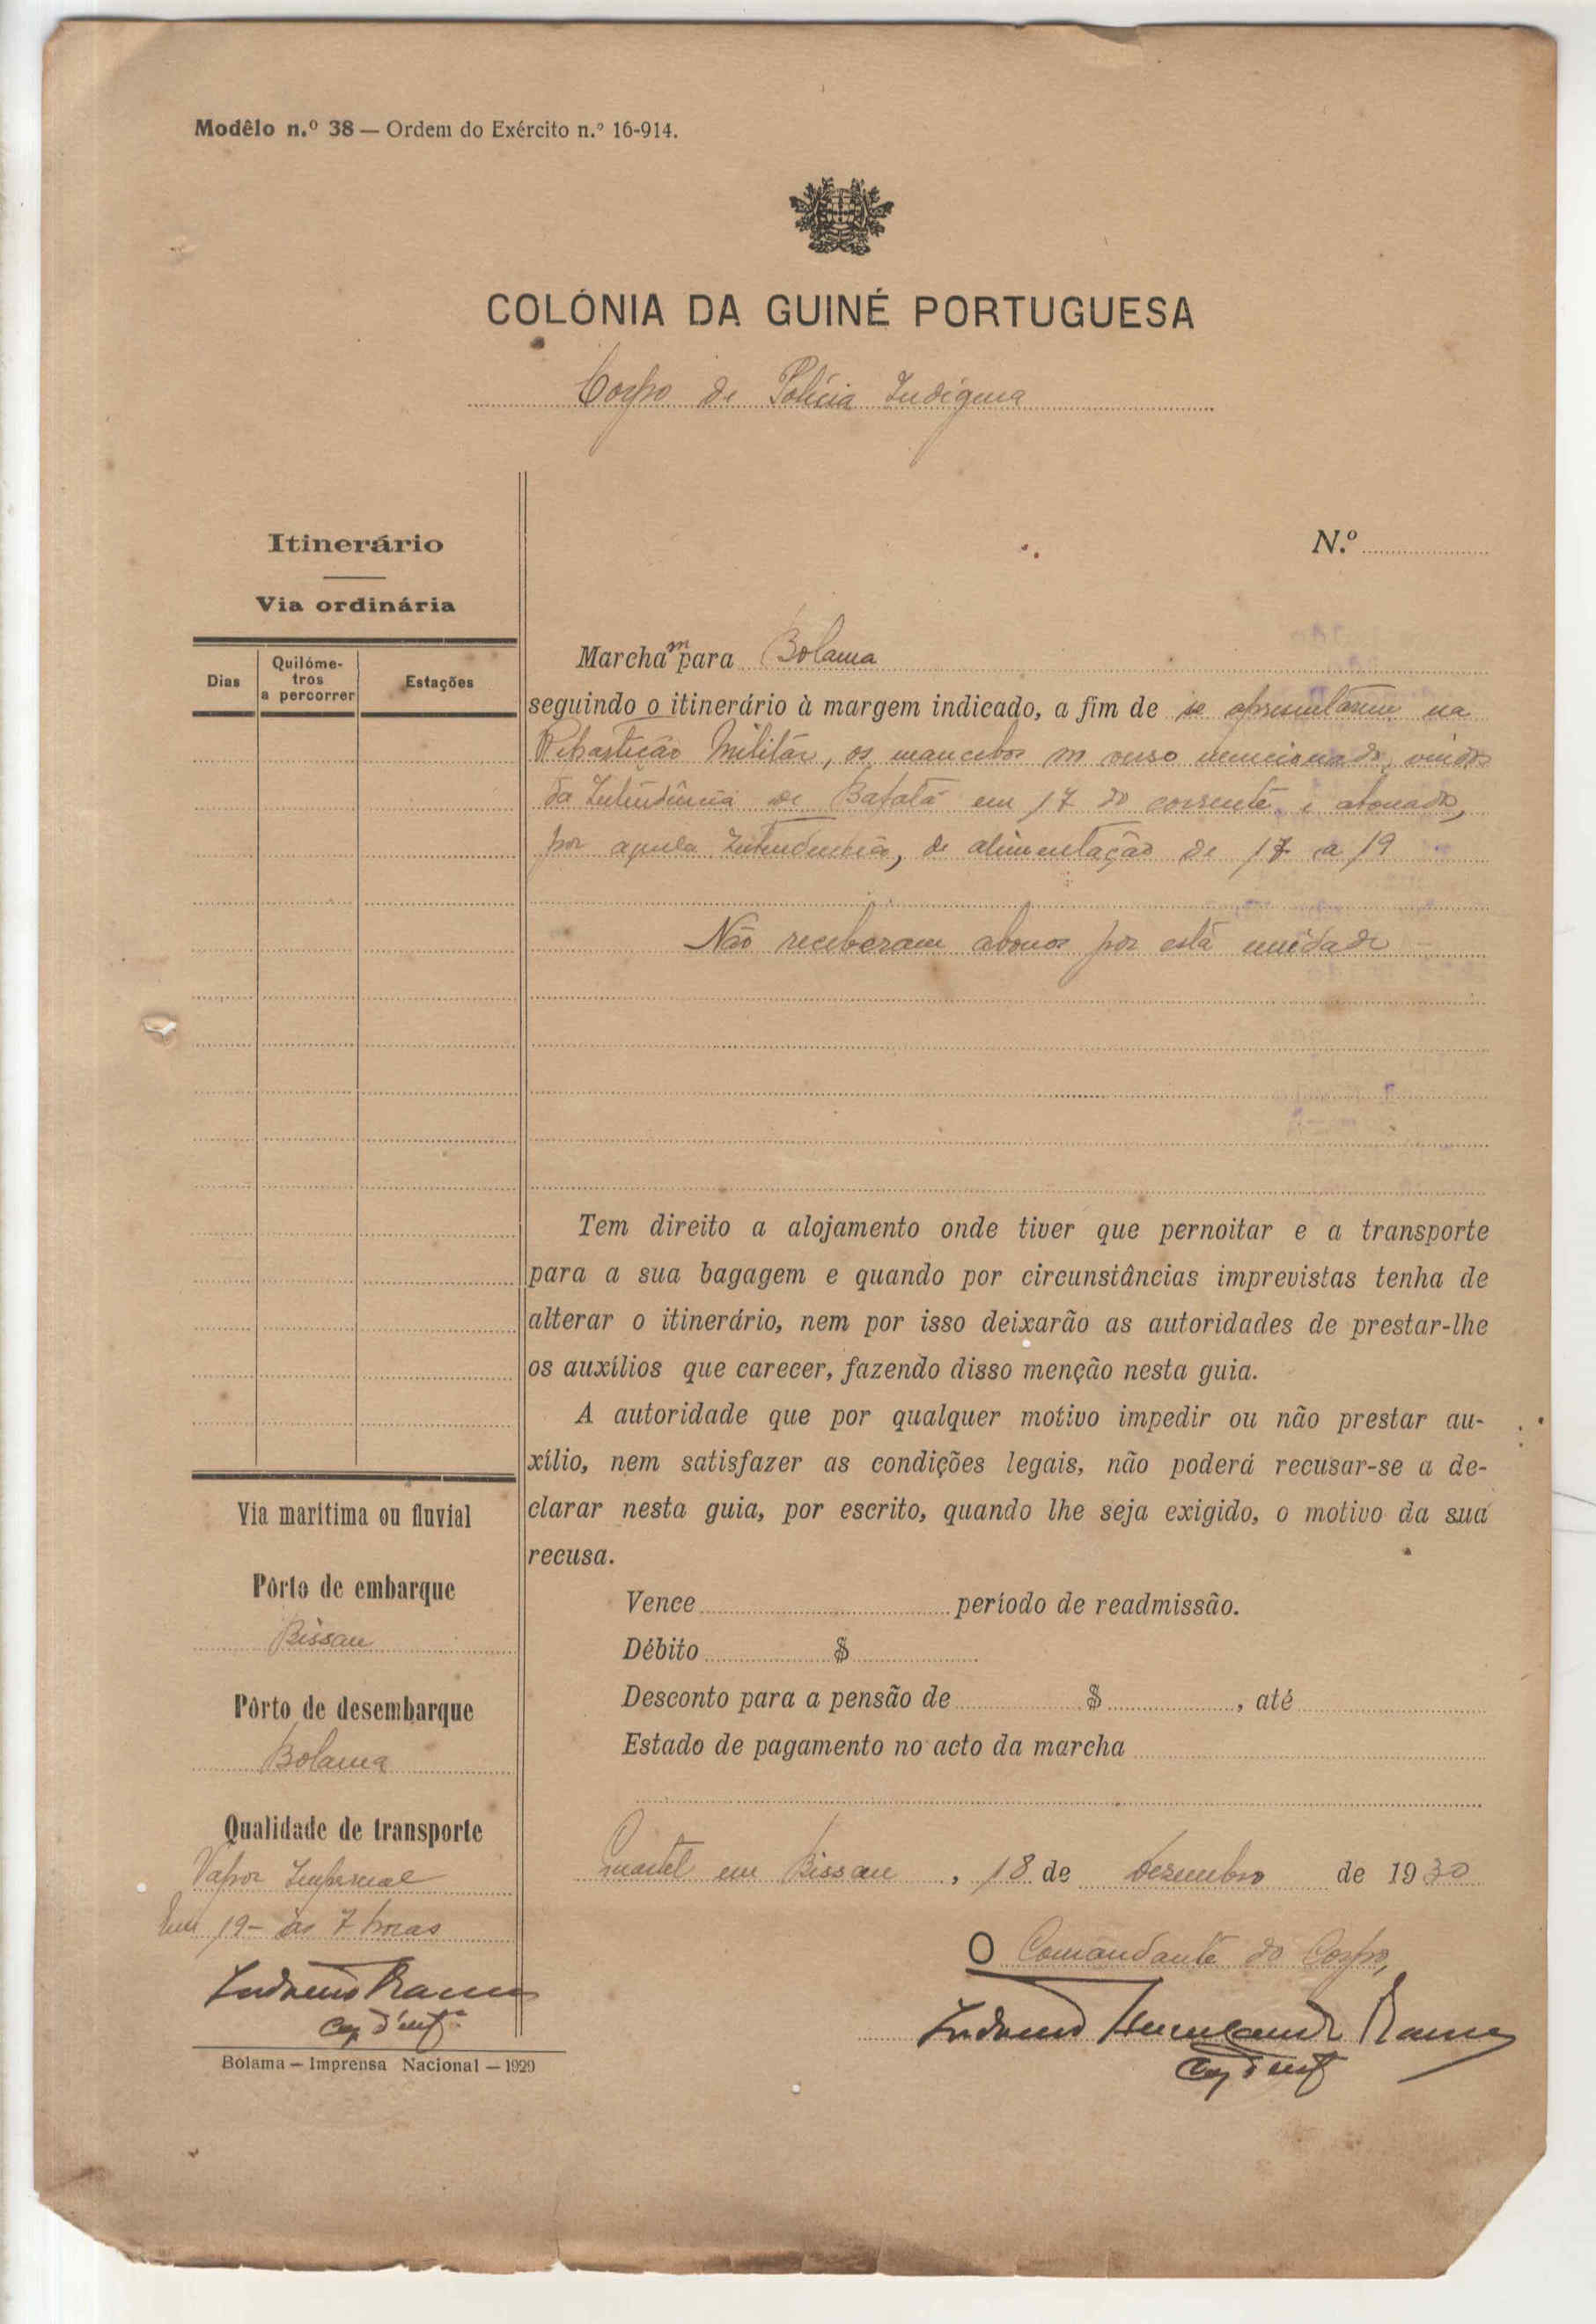 Modêlo n.º 38 — Ordem do Exército n.º 16-914.
COLÓNIA DA GUINÉ PORTUGUESA
Corpo de Polícia Indígena
Itinerário
Via ordinária
Dias
Quilóme-
tros
a percorrer
Estações
N.º
Marcham para Bolama
seguindo o itinerário à margem indicado, a fim de se apresentarem na
Repartição Militar, os mancebos no verso mencionados, vindos
da Intendência de Bafatá em 17 do corrente e abonados,
por aquela Intendencia, de alimentação de 17 a 19
Não receberam abonos por está unidade
Tem direito a alojamento onde tiver que pernoitar e a transporte
para a sua bagagem e quando por circunstâncias imprevistas tenha de
alterar o itinerário, nem por isso deixarão as autoridades de prestar-lhe
os auxílios que carecer, fazendo disso menção nesta guia.
A autoridade que por qualquer motivo impedir ou não prestar au-
xílio, nem satisfazer as condições legais, não poderá recusar-se a de-
clarar nesta guia, por escrito, quando lhe seja exigido, o motivo da sua
recusa.
Vence período de readmissão.
Débito $
Desconto para a pensão de $ , até
Estado de pagamento no acto da marcha
Quartel em Bissau, 18 de Dezembro de 1930
O Comandante do Corpo,
Ramos
Cap d'inf
Via maritima ou fluvial
Pôrto de embarque
Bissau
Pôrto de desembarque
Bolama
Qualidade de transporte
Vapor Imperial
Em 19- às 7 horas
Ramos
Cap d'infª
Bolama — Imprensa Nacional — 1929